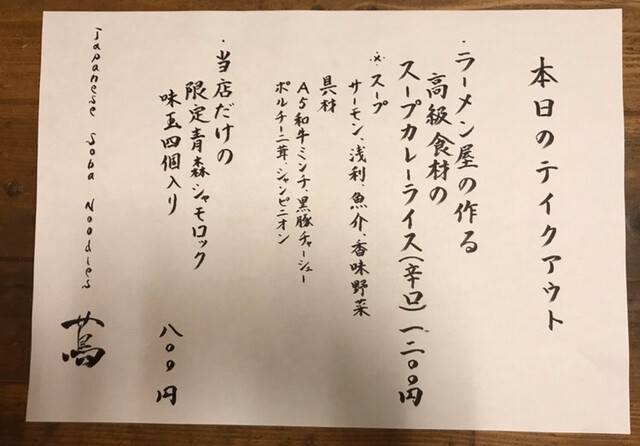 本日のテイクアウト
・ラーメン屋の作る
高級食材の
スープカレーライス(辛口)一二〇〇円
※スープ
サーモン、浅利、魚介、香味野菜
具材
A5和牛ミンチ、黒豚チャーシュー
ポルチーニ茸、シャンピニオン
・当店だけの
限定青森シャモロック
味玉四個入り 八〇〇円
Japanese Soba Noodles 蔦